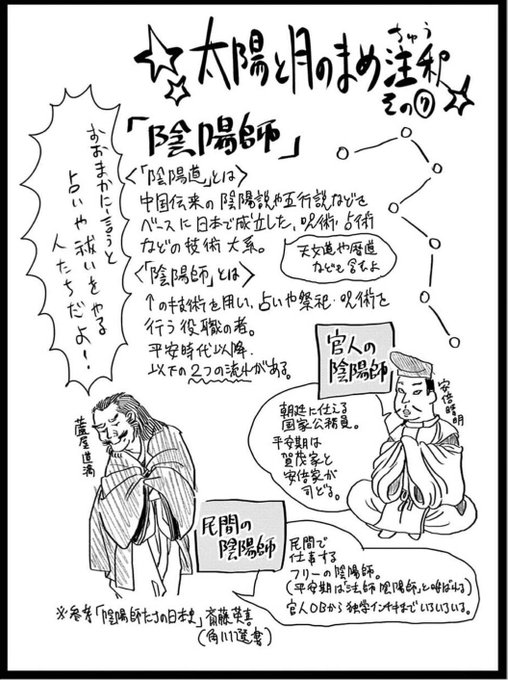 太陽と月のまめ注釈
ちゅう
その⑦
「陰陽師」
おおまかに言うと
占いや祓いをやる
人たちだよ！
<「陰陽道」とは>
中国伝来の陰陽説や五行説などを
ベースに日本で成立した、呪術・占術
などの技術大系。
天文道や暦道
なども含むよ
<「陰陽師」とは>
↑の技術を用い、占いや祭祀・呪術を
行う役職の者。
平安時代以降、
以下の2つの流れがある。
官人の
陰陽師
安倍晴明
朝廷に仕える
国家公務員。
平安期は
賀茂家と
安倍家が
司どる。
蘆屋道満
民間の
陰陽師
民間で
仕事する
フリーの陰陽師。
(平安期は「法師陰陽師」と呼ばれる)
官人OBから独学インチキまでいろいろいる。
※参考「陰陽師たちの日本史」斎藤英喜
(角川選書)